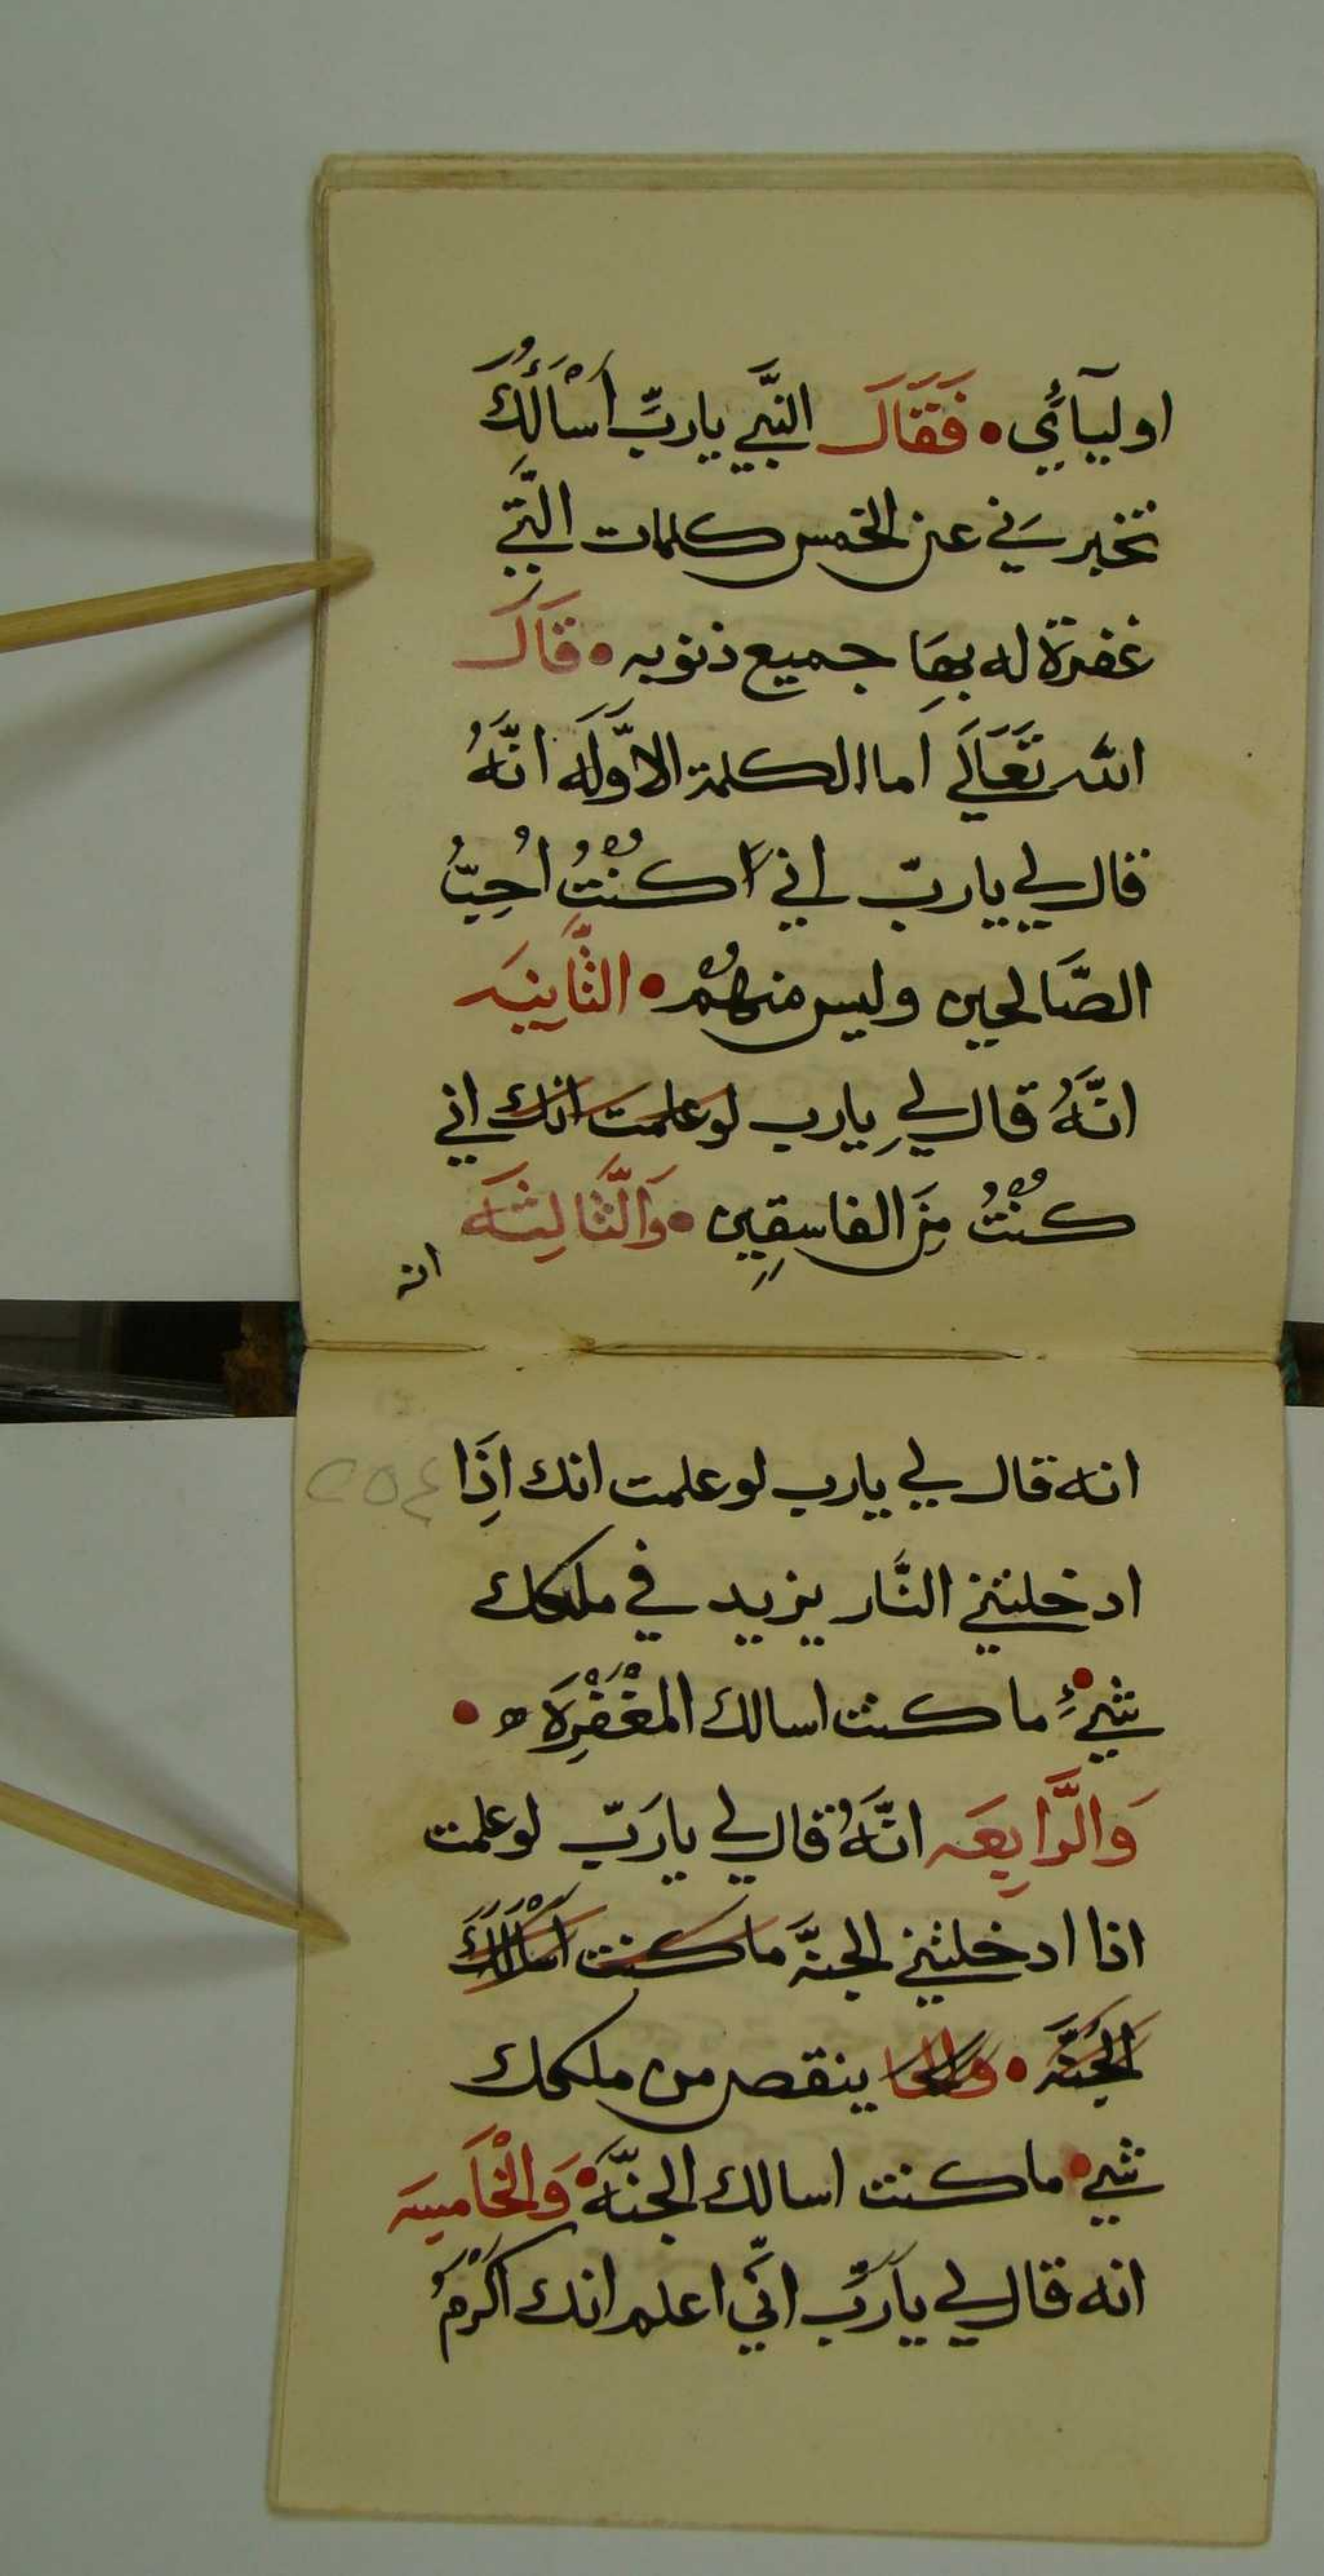 اوليآئي • فَقَالَ النبَّي يارِبِّ اَسْأَلُكَ
تخبرني عن الخمس كلمات الَّتي
غفرة له بهَا جميع ذنوبه • قَالَ
الله تَعَالَي اَما الكلمة الاوَّله انَّهُ
قال لي يارب اني كُنْتُ اُحِبُّ
الصَّالحين وليس منهُمْ • الثَّانِيَه
انَّهُ قال لي يارب لو علمت انك اني
كُنْتُ مِنَ الفاسقِين • وَالثَّالِثَه
انه
انه قال لي يارب لو علمت انك اِذَا
ادخلتني النَّار يزيد في ملكك
شيءٍ • ما كنت اسالك المغْفِرَة •
وَالرَّابِعَه انَّهُ قال لي يارَبّ لو علمت
اذا ادخلتني الجنَّة ما كنت اَسْالُكَ
الجَنَّة • ينقص من ملكك
شي • ما كنت اسالك الجنَّة • وَالْخَامِسَه
انه قال لي يارَبِّ انّي اعلم انك اَكْرَمُ
٢٥٤